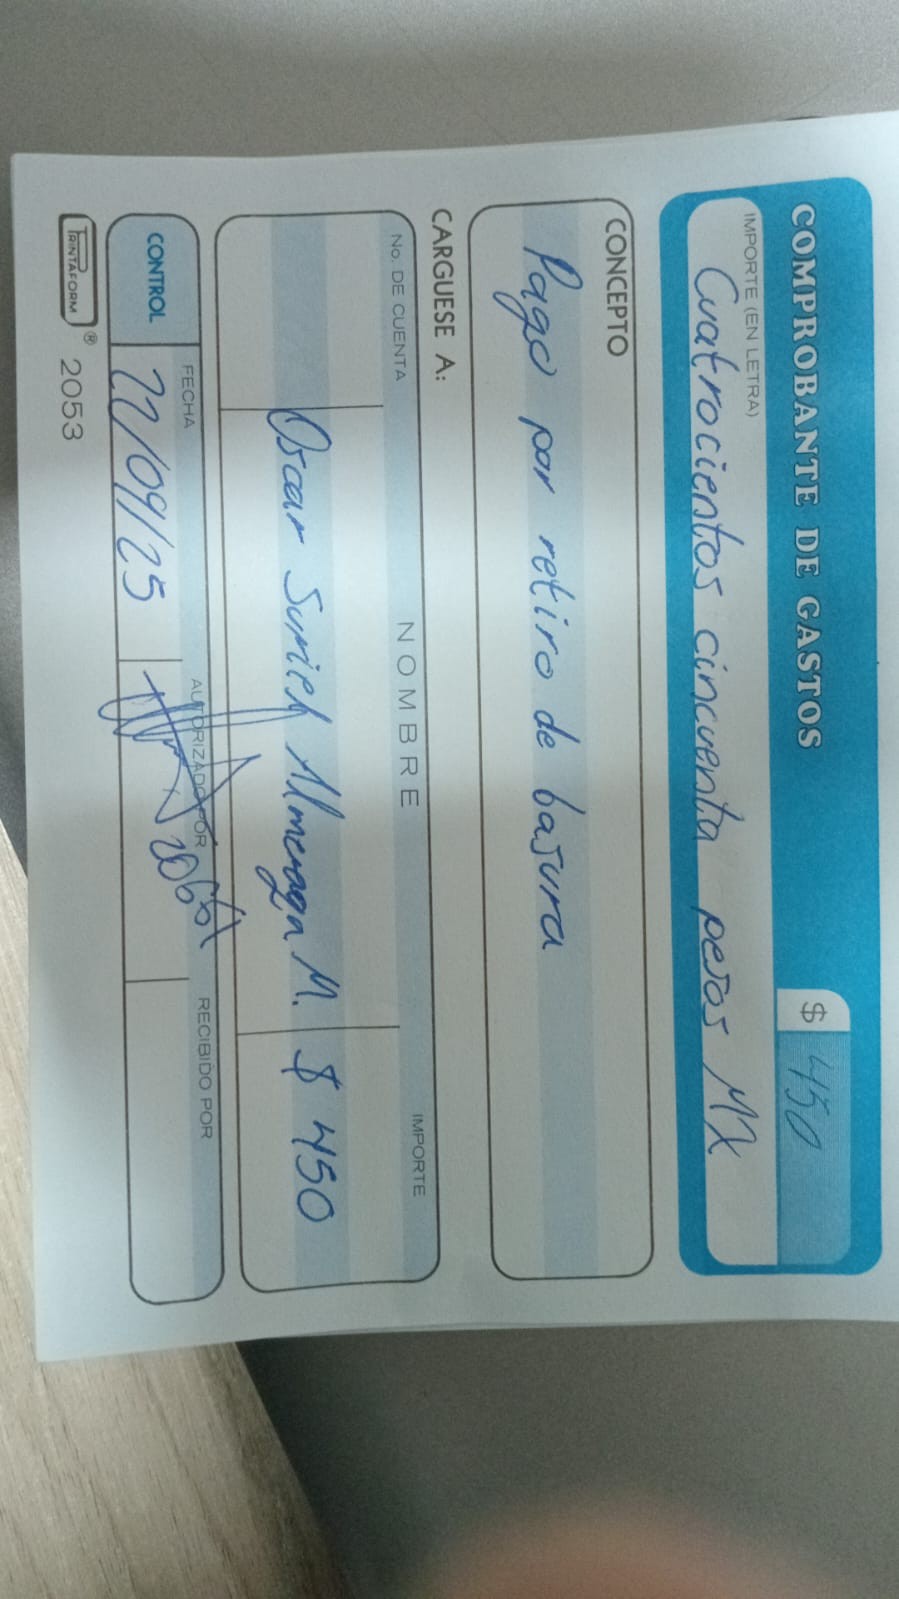 COMPROBANTE DE GASTOS
$ 450
IMPORTE (EN LETRA)
Cuatrocientos cincuenta pesos MX
CONCEPTO
Pago por retiro de basura
CARGUESE A:
No. DE CUENTA NOMBRE IMPORTE
Oscar M. $ 450
CONTROL FECHA AUTORIZADO POR RECIBIDO POR
22/09/25
PRINTAFORM ® 2053